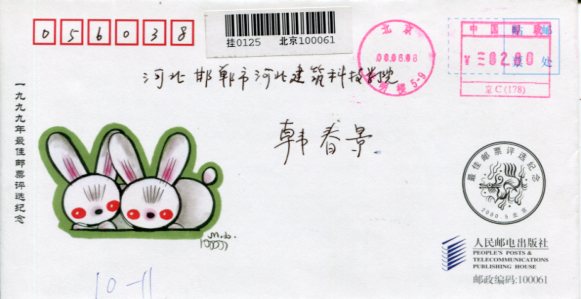 056038
挂0125 北京100061
北京
00.06.08
中国邮政
¥ 02.00
京C(178)
贴邮
票处
河北邯郸市河北建筑科技学院
韩春景
一九九九年最佳邮票评选纪念
最佳邮票评选纪念
2000.5 北京
人民邮电出版社
PEOPLE'S POSTS &
TELECOMMUNICATIONS
PUBLISHING HOUSE
邮政编码:100061
10-11